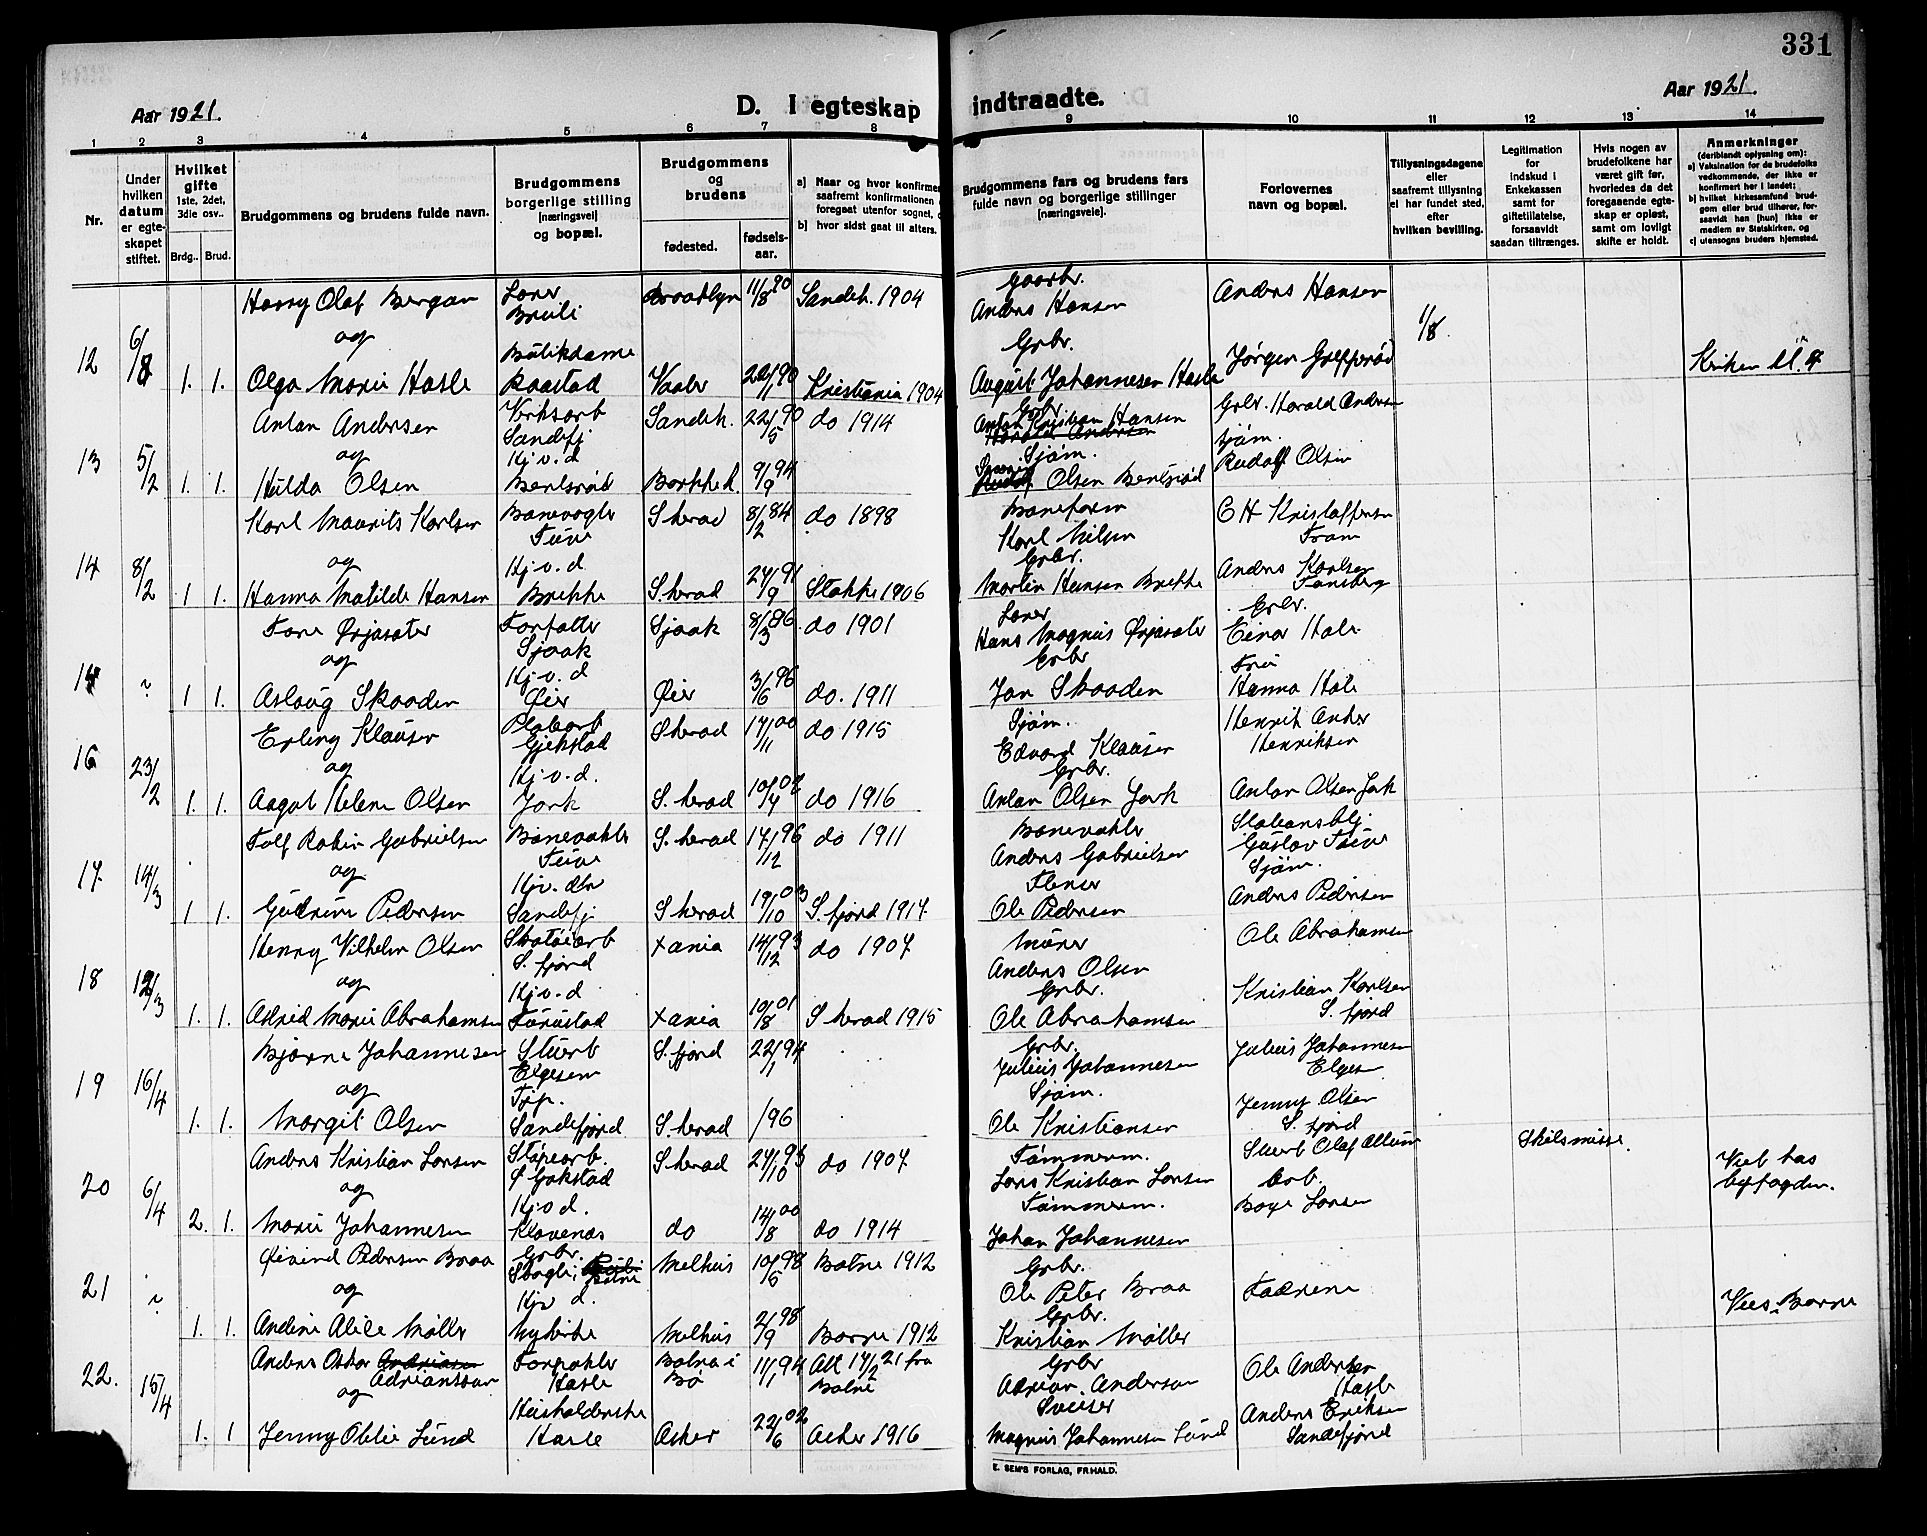 331
Aar 1921.
D. I egteskap indtraadte.
Aar 1921.
1 2 3 4 5 6 7 8 9 10 11 12 13 14
Nr.
Under hvilken datum er egteskapet stiftet.
Hvilket gifte 1ste, 2det, 3die osv..
Brdg. Brud.
Brudgommens og brudens fulde navn.
Brudgommens borgerlige stilling [næringsvei] og bopæl.
Brudgommens og brudens
fødested. fødselsaar.
a) Naar og hvor konfirmer
saafremt konfirmationen
foregaaet utenfor sognet,
b) hvor sidst gaat til alters.
Brudgommens fars og brudens fars fulde navn og borgerlige stillinger [næringsveie].
Forlovernes navn og bopæl.
Tillysningsdagene eller saafremt tillysning ei har fundet sted, efter hvilken bevilling.
Legitimation for indskud i Enkekassen samt for giftetillatelse, forsaavidt saadan tiltrænges.
Hvis nogen av brudefolkene har været gift før, hvorledes da det foregaaende egteskap er opløst, samt om lovligt skifte er holdt.
Anmerkninger
(deriblandt oplysning om):
a) Vaksination for de brudefolks vedkommende, der ikke er konfirmert her i landet;
b) hvilket kirkesamfund brudgom eller brud tilhører, forsaavidt han [hun] ikke er medlem av Statskirken, og
c) utensogns bruders hjemsted.
12 6/8 Harry Olaf Bergan Brooklyn 11/8 90 Sandeh. 1904 Gaarbr. Anders Hansen Anders Hansen 1/8
og
1. 1. Olga Marie Hasle Butikdame Raastad Vaaler 22/11 90 Kristiania 1904 Grbr. August Johannesen Hasle Jørgen
13 5/2 Anton Andersen Verksarb Sandefj Sandeh. 22/5 90 do 1914 Grbr. Anton Kristian Hansen Grbr. Harald Andersen
og
1. 1. Hulda Olsen Hj.v.d 9/9 94 Sjøm. Olsen Sjøm. Rudolf Olsen
14 8/2 Karl Maurits Karlsen Banevogter S herad 8/2 84 do 1898 Baneform Karl Nilsen C H Kristoffersen Fram
og
1 1. Hanna Matilde Hansen Hj.v.d. Brekke S.herad 24/9 91 Stokke 1906 Grbr. Martin Hansen Brekke Anders Karlsen Tønsberg
14 " Tore Ørjasæter Forfatter Sjaak Sjaak 8/3 86 do 1901 Lærer Hans Magnus Ørjasæter Grbr. Einar Hole
og
1 1. Aslaug Skaaden Hj.v.d Øier Øier 3/6 96 do. 1911 Grbr Jon Skaaden Frü Hanna Hole
16 23/2 Erling Klausen Gjekstad S herad 17/11 00 do 1915 Sjøm. Edvard Klausen Henrik Henriksen
og
1. 1. Aagot Helene Olsen Hj.v.d. Jork S. herad 10/4 02 do 1916 Grbr. Anton Olsen Jork Anton Olsen Jork
17 14/3 Tolf Robin Gabrielsen Banevokter S. herad 17/12 96 do 1911 Banevokter Anders Gabrielsen Stationsbtj. Gustav
og
1 1. Gudrun Pedersen Hjv. dtr Sandefj S herad 19/10 03 S. fjord 1917 Ole Pedersen Sjøm. Anders Pedersen
18 12/3 Henry Vilhelm Olsen Skotøiarb S. fjord Xania 14/12 93 do 1907 Murer Anders Olsen Ole Abrahamsen
og
1. 1. Astrid Marie Abrahamsen Hj.v.d Furustad Xania 10/8 01 S herad 1915 Grbr. Ole Abrahamsen Kristian Karlsen S. fjord
19 16/4 Bjarne Johannesen Stuerb Elgesem S. fjord 22/1 94 Grbr. Julius Johannesen Julius Johannesen
og
1. 1. Margit Olsen Tjp. Sandefjord S. herad /96 Sjøm. Ole Kristiansen Jenny Olsen S. fjord
20 6/4 Anders Kristian Larsen Støperarb. Gokstad S herad 24/10 93 do 1907 Tømmerm. Lars Kristian Larsen Skilsmisse. Viet hos byfogden.
og
2. 1. Marie Johannesen Hj.v.d. Klavenæs do 14/8 00 do 1914 Tømmerm. Johan Johannesen Arb. Larsen
21 " Øivind Pedersen Braa Grbr. Melhus 10/5 98 Botne 1912 Grbr. Ole Peter Braa Fædrene
og
1. 1. Andine Alice Møller Hjv d. Nykirke Melhus 2/9 98 Borre 1912 Grbr. Kristian Møller Vies. Borre
22. 15/4 Anders Oskar Adriansen Hasle 11/1 94 Att 17/2 21 fra Botne Grbr Adrian Anderson Ole Andersen Hasle
og
1. 1 Jenny Otilie Lund Husholderske Hasle Asker 22/6 02 Asker 1916 Sveiser Magnus Johannesen Lund Anders Eriksen Sandefjord
E. SEM'S FORLAG, FR.HALD.